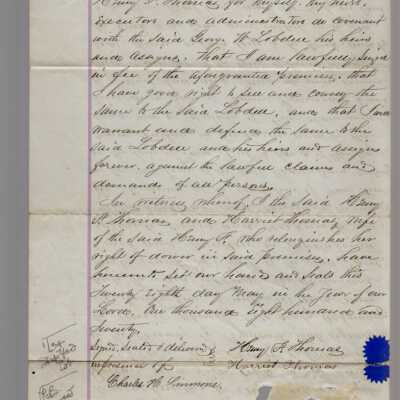 Henry F. Thomas for myself my heirs
executors and administrators do covenant
with the said George W. Lobdell his heirs
and assigns, that I am lawfully seized
in fee of the aforegranted premises, that
I have good right to sell and convey the
same to the said Lobdell, and that I will
warrant and defend the same to the
said Lobdell and his heirs and assigns
forever, against the lawful claims and
demands of all persons
In witness whereof, I the said Henry
F. Thomas and Harriet Thomas, wife
of the said Henry F. who relinquishes her
right of dower in said premises, have
hereunto set our hands and seals this
Twenty eighth day May in the Year of our
Lord, One thousand eight hundred and
seventy.
Signed, sealed & delivered Henry F. Thomas
in presence of Harriet Thomas
Charles H. Simmons